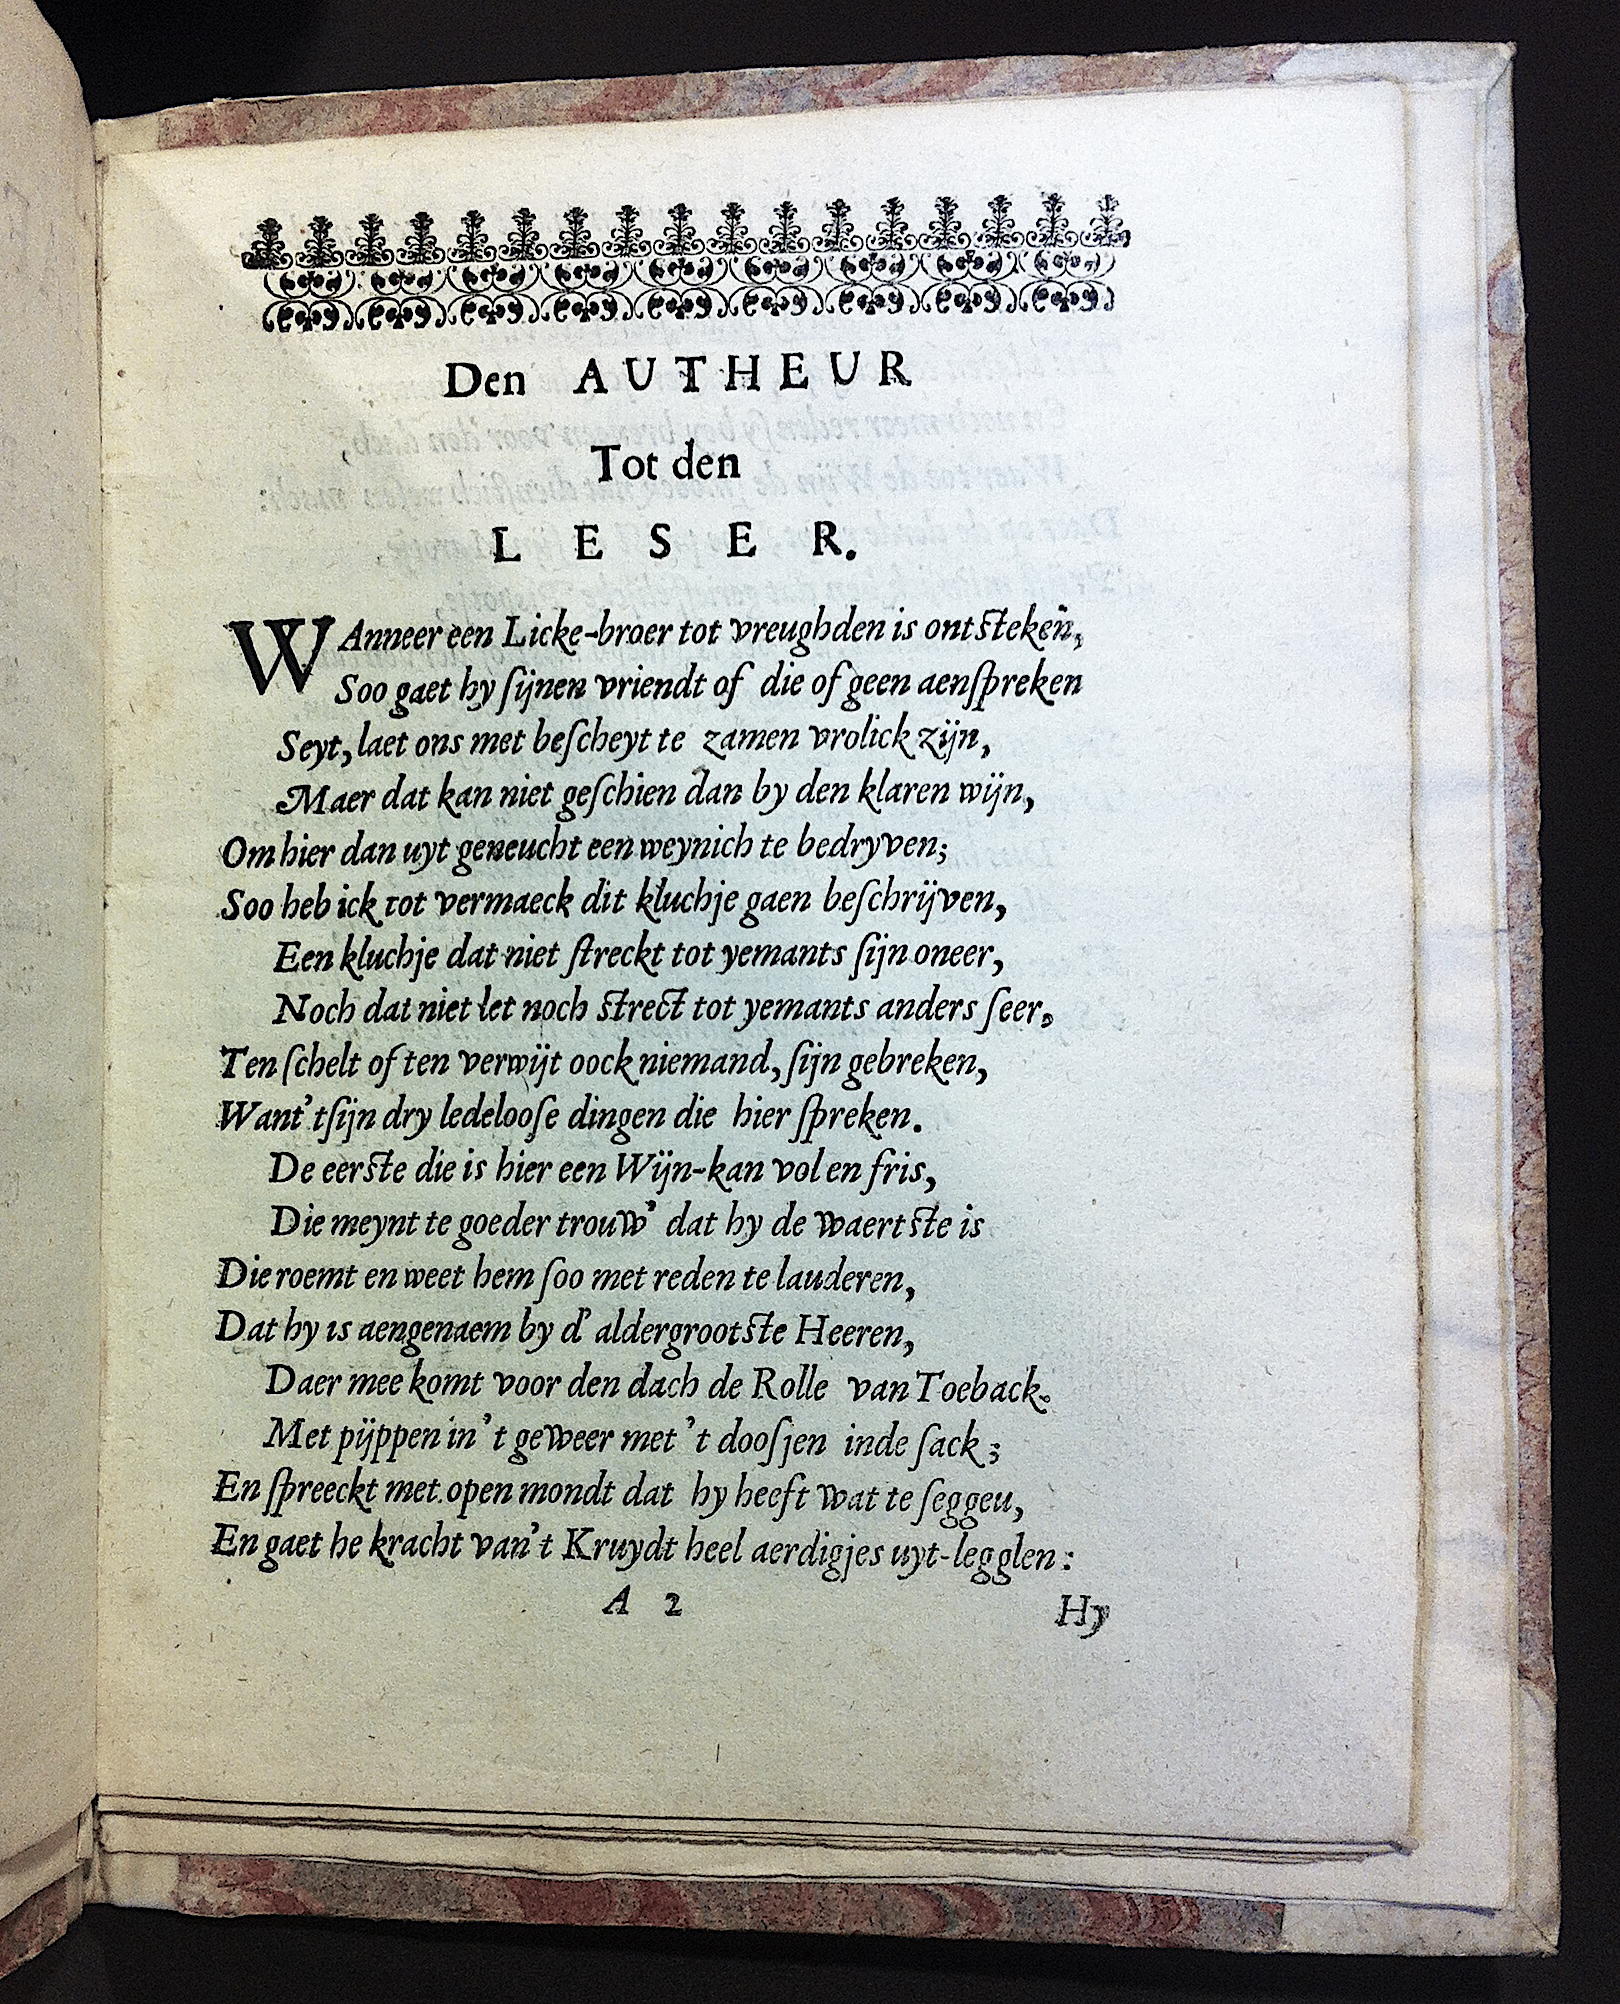 Den AUTHEUR
Tot den
LESER.
WAnneer een Licke-broer tot vreughden is ontsteken̄,
Soo gaet hy ſijnen vriendt of die of geen aenſpreken
Seyt, laet ons met beſcheyt te zamen vrolick zijn,
Maer dat kan niet geſchien dan by den klaren wijn,
Om hier dan uyt geneucht een weynich te bedryven;
Soo heb ick tot vermaeck dit kluchje gaen beſchrijven,
Een kluchje dat niet ſtreckt tot yemants ſijn oneer,
Noch dat niet let noch strect tot yemants anders ſeer,
Ten ſchelt of ten verwijt oock niemand, ſijn gebreken,
Want'tſijn dry ledelooſe dingen die hier ſpreken.
De eerste die is hier een Wijn-kan vol en fris,
Die meynt te goeder trouw' dat hy de waertste is
Die roemt en weet hem ſoo met reden te lauderen,
Dat hy is aengenaem by d' aldergrootste Heeren,
Daer mee komt voor den dach de Rolle van Toeback.
Met pijppen in 't geweer met 't dooſjen inde ſack;
En ſpreeckt met open mondt dat hy heeft wat te ſeggeu,
En gaet he kracht van't Kruydt heel aerdigjes uyt-legglen:
A 2 Hy